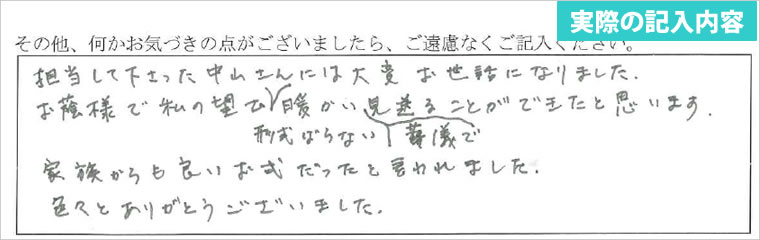 実際の記入内容
その他、何かお気づきの点がございましたら、ご遠慮なくご記入ください。
担当して下さった中山さんには大変お世話になりました.
お蔭様で私の望む暖かい見送ることができたと思います.
形式ばらない 葬儀で
家族からも良いお式だったと言われました.
色々とありがとうございました.